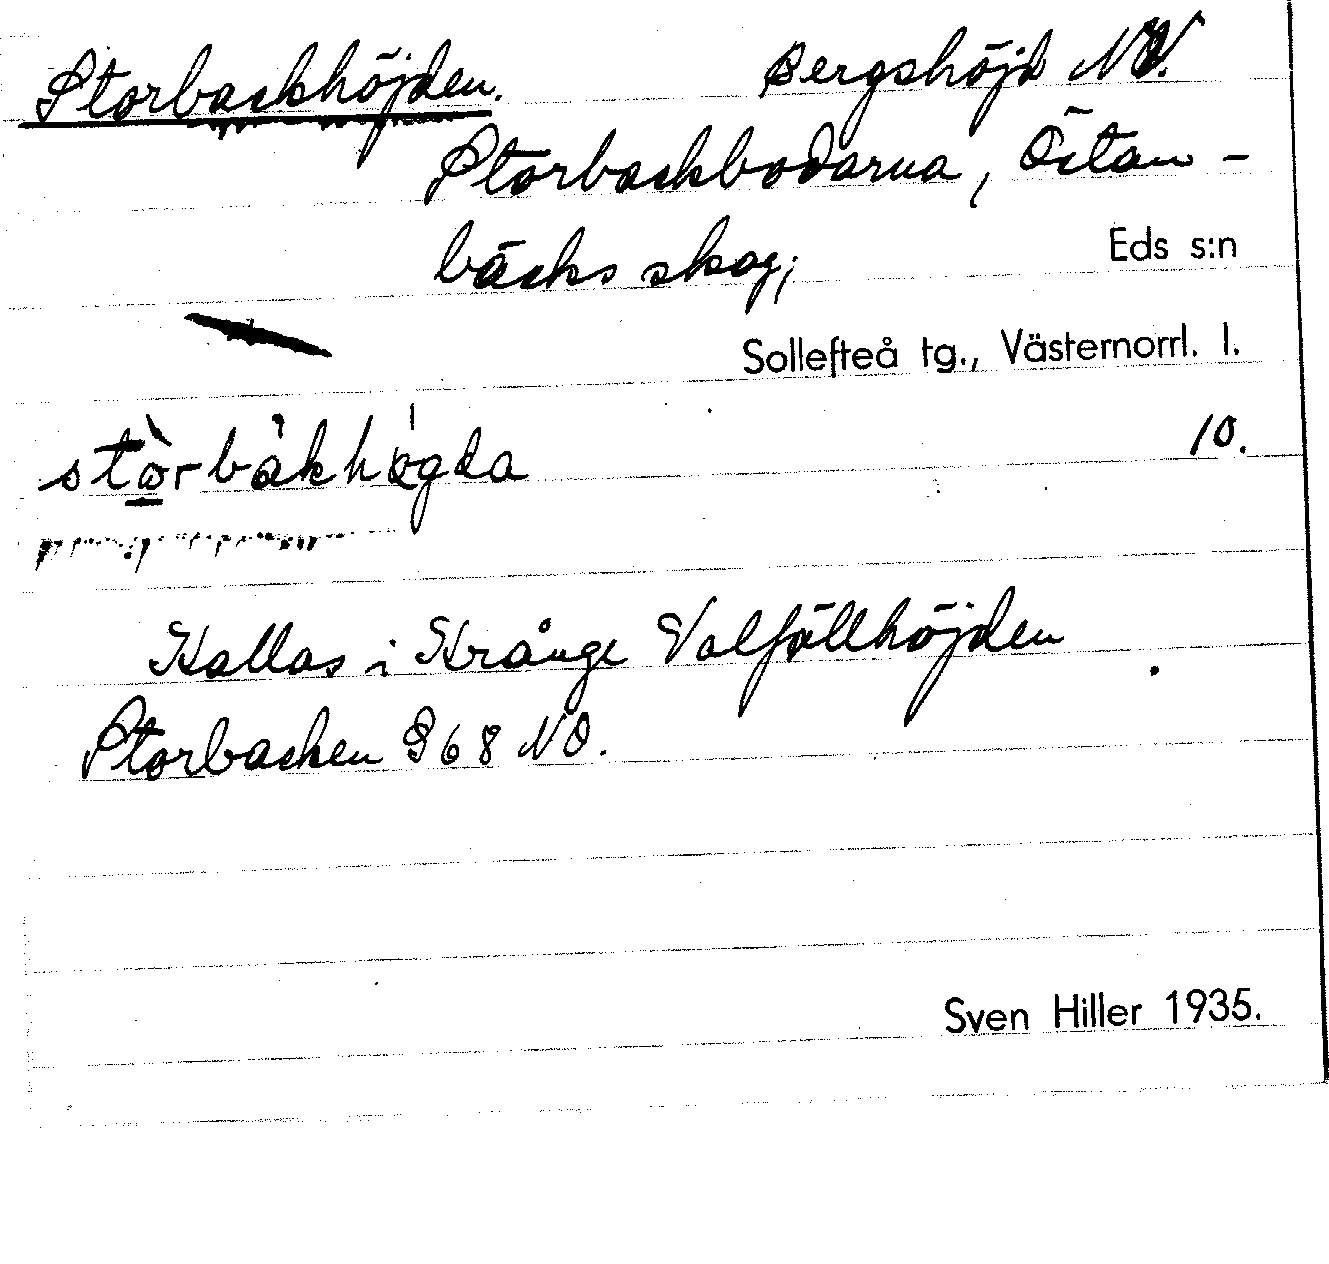 Storbackhöjden. Bergshöjd NV.
Storbackbodarna, Östan-
bäcks skog; Eds s:n
Sollefteå tg., Västernorrl. l.
10.
Kallas i Krånge Valfällhöjden
Storbacken 968 NO.
Sven Hiller 1935.